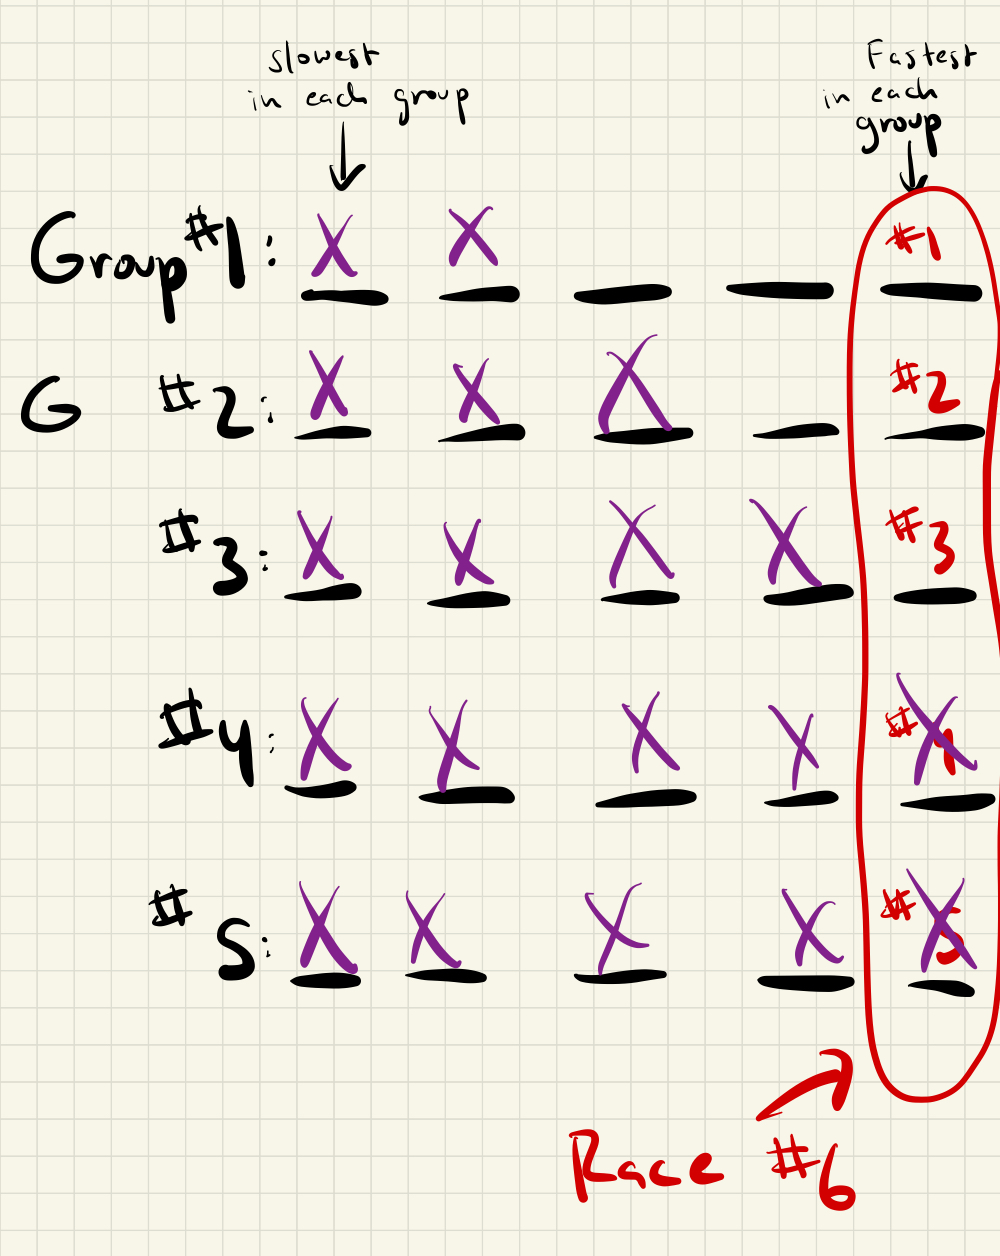 slowest
in each group
Fastest
in each
group
Group #1: X X #1
G #2: X X X #2
#3: X X X X #3
#4: X X X X #4 X
#5: X X X X #5 X
Race #6